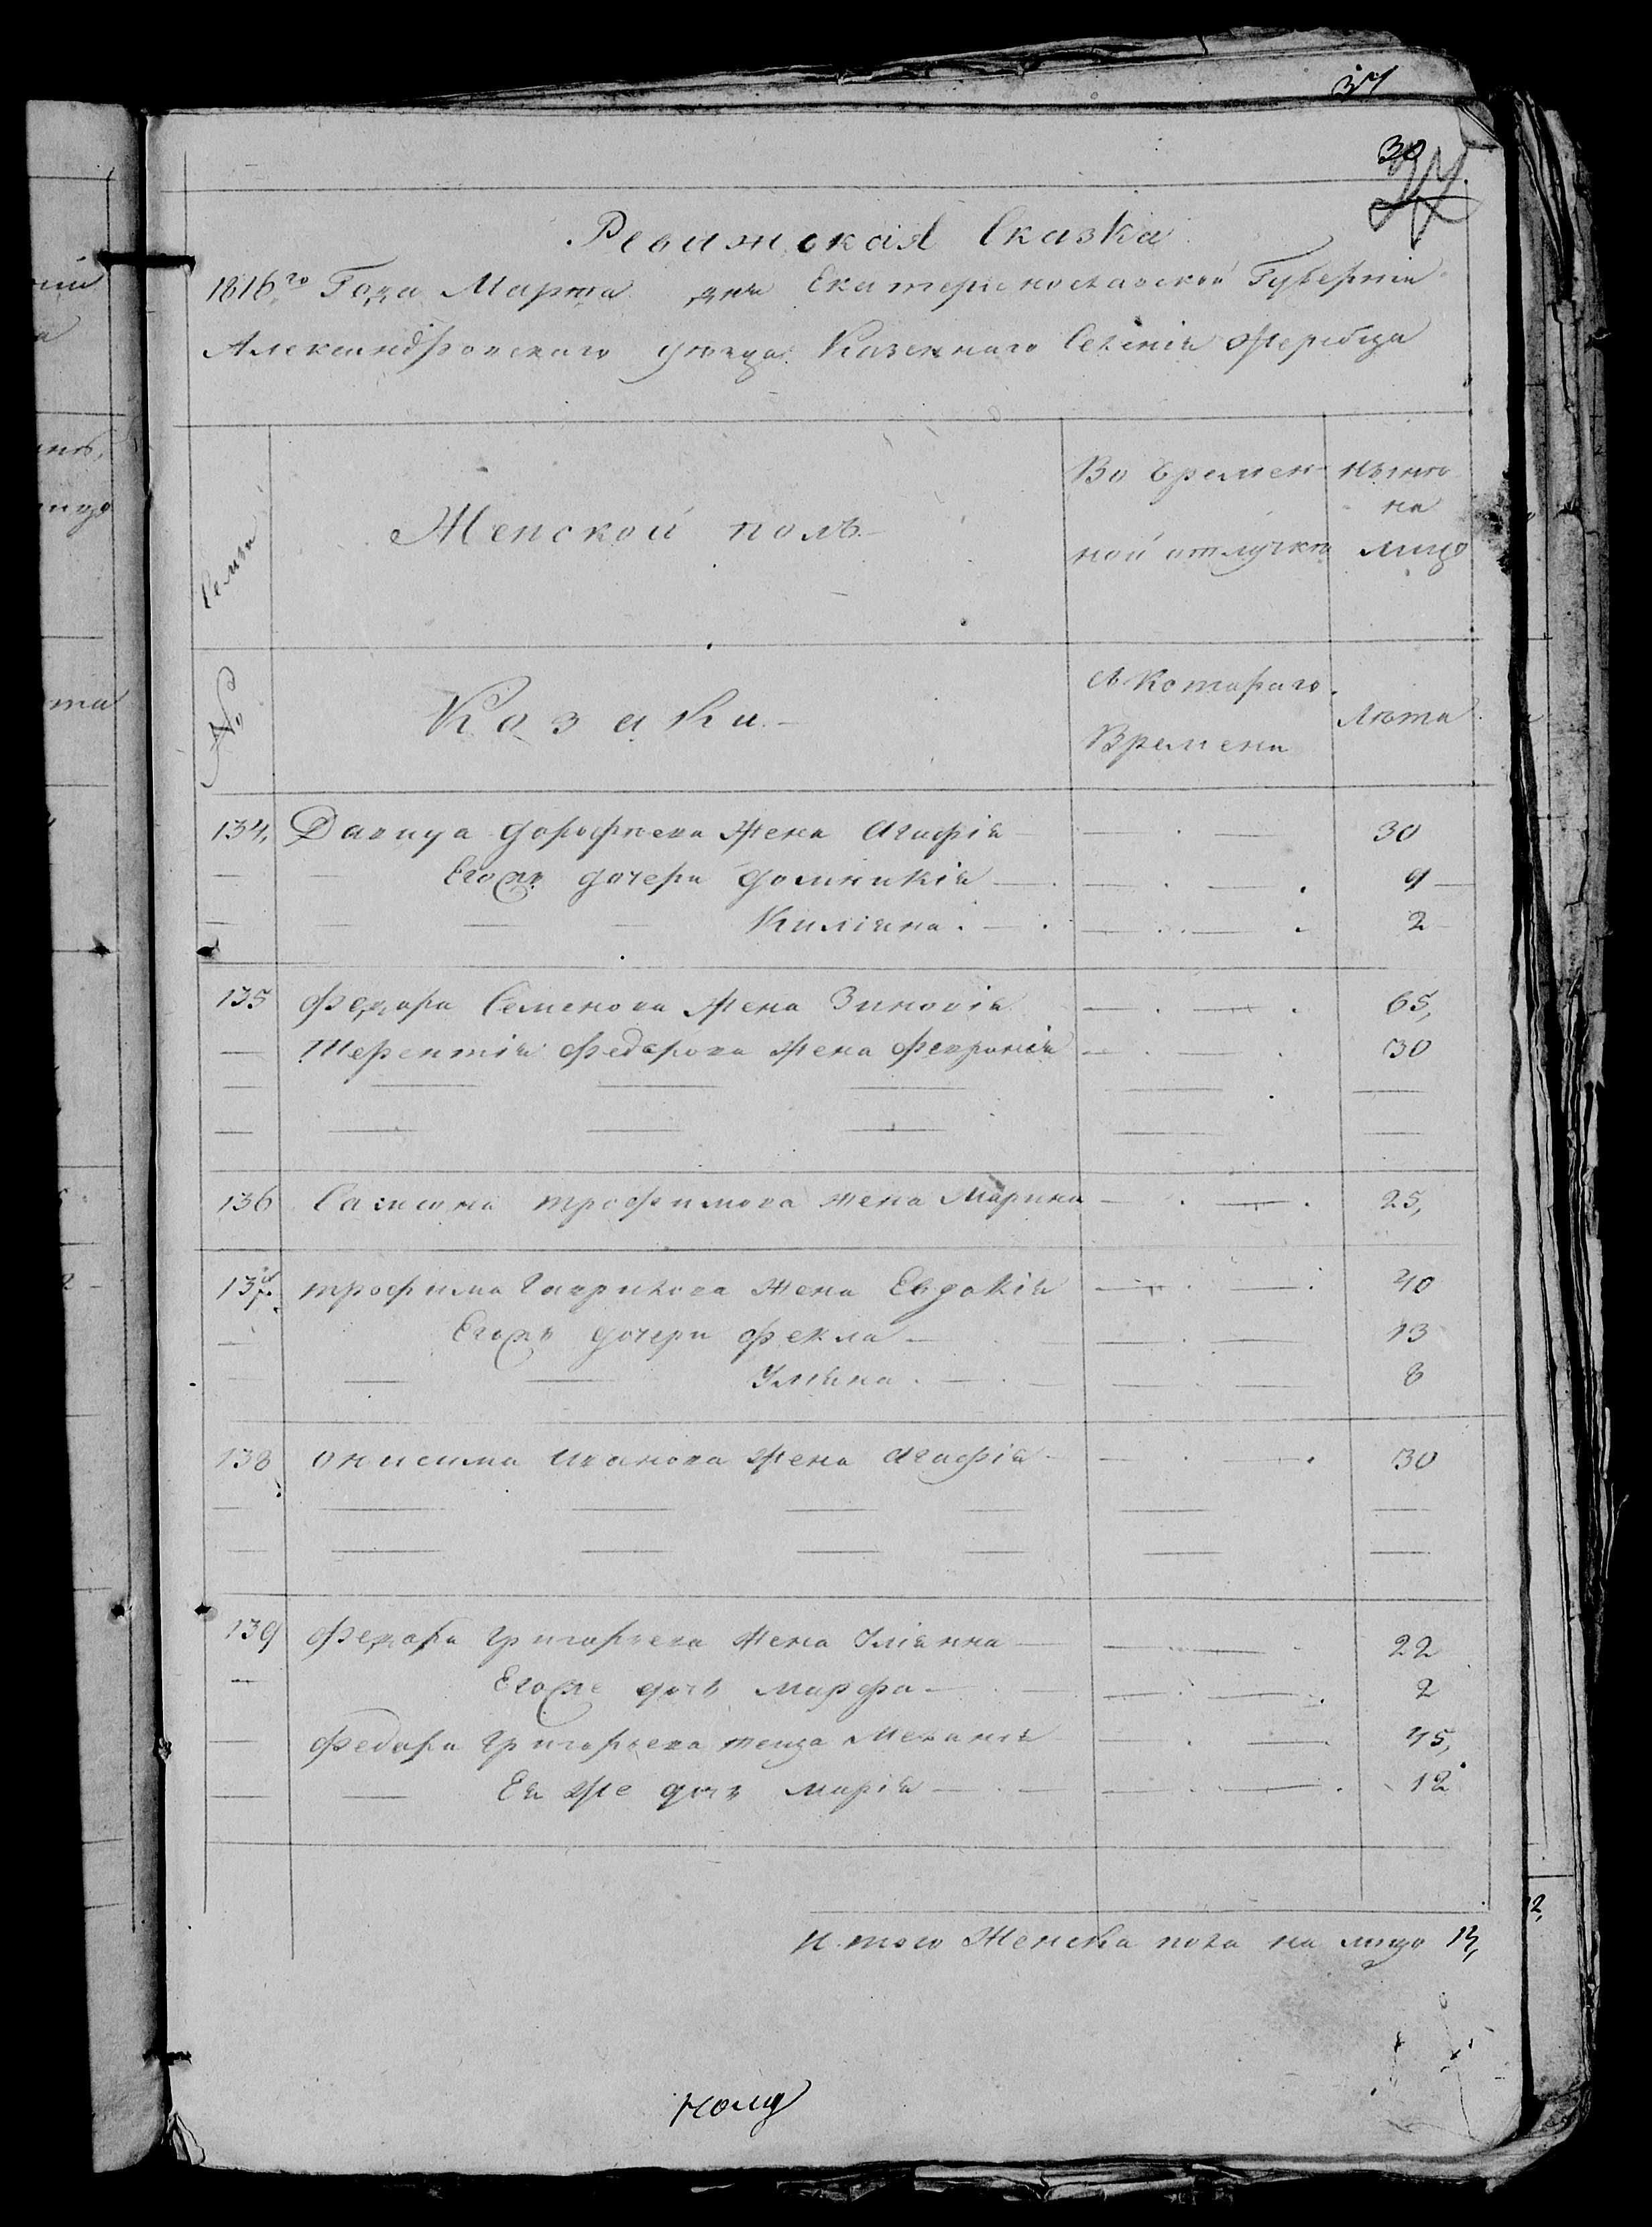 37
30
37
Ревижская Сказка
1816го Года Марта дня Екатеринославской Губерніи
Александровскаго уезда Казеннаго Селенія Жеребца
Семьи
Женской полъ
Во времен
ной отлучкѣ
нынѣ
на
лицо
№
Козаки
Съ Котораго
Времени
Лѣта
134, Давида Дорофѣева Жена Агафія 30
Егожъ дочери Домникія 9
Киліяна 2
135 Федора Семенова Жена Зиновія 65,
Терентія Федорова Жена Февронія 30
136 Самсона трофимова жена Марина 25,
137 трофима Гаврилова Жена Евдокія 40
Егожъ дочери Фекла 13
Улияна 8
138 Онисима Иванова Жена Агафія 30
139 Федора Григорьева Жена Уліянна 22
Егоже дочь Марфа 2
Федора Григорьева теща Меланія 45,
Ея Же дочь Марія 12
Итого Женска пола на лицо 13,